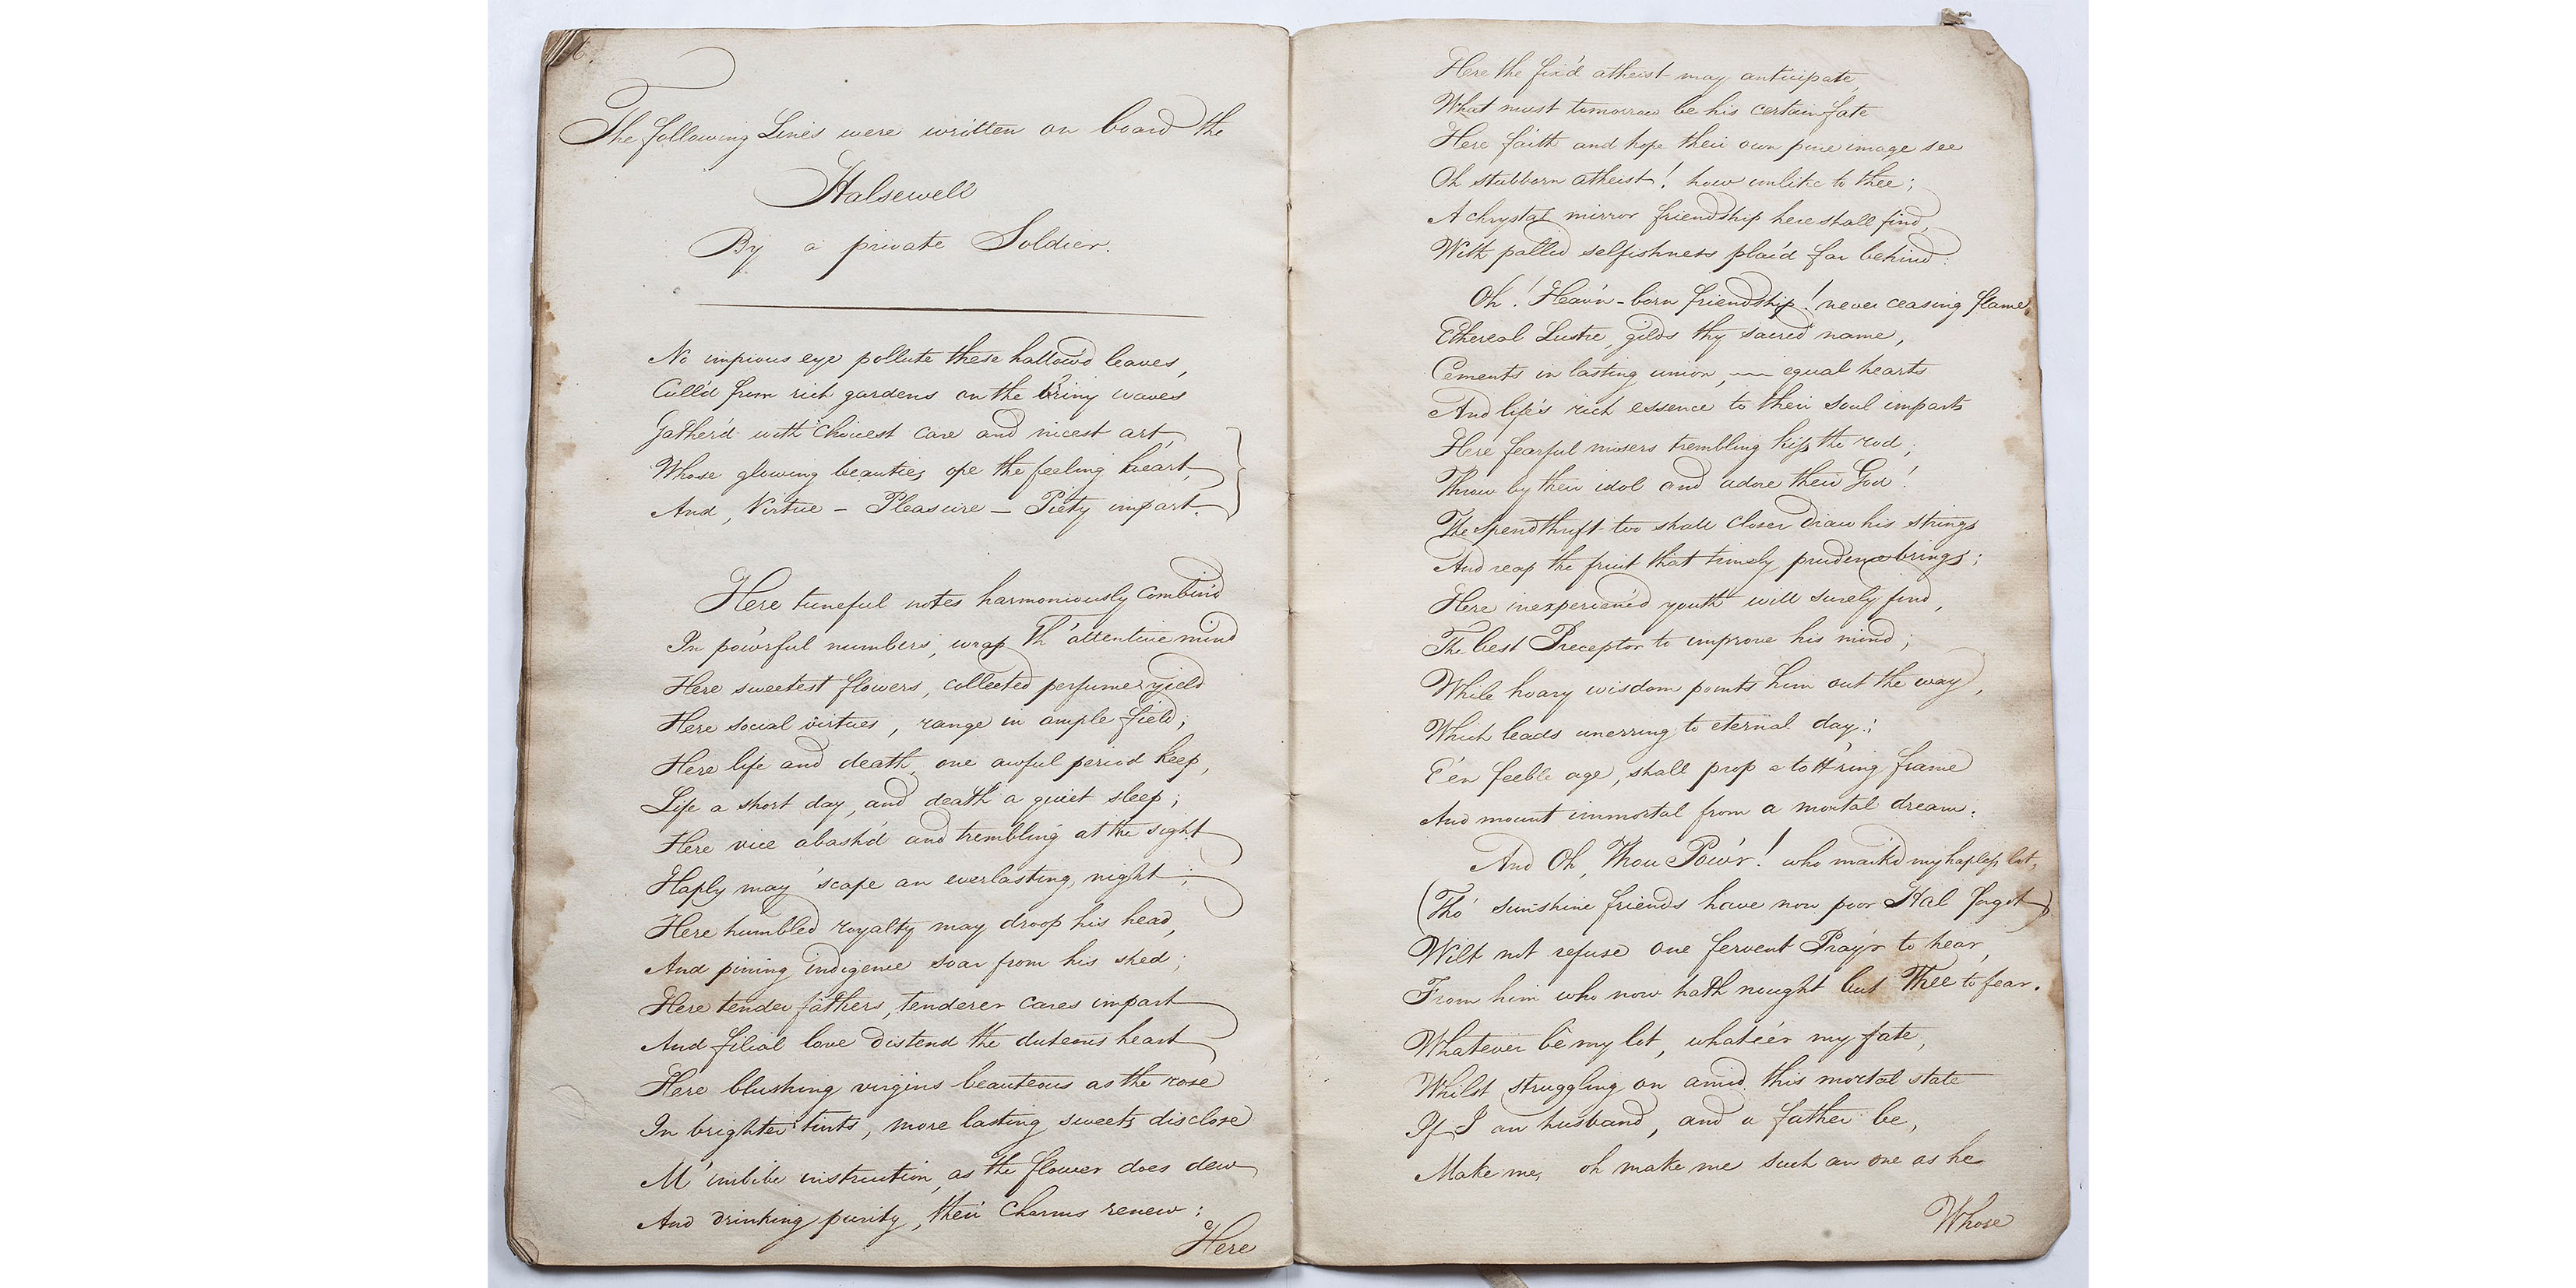 The following Lines were written on board the
Halsewell
By a private Soldier.
No impious eye pollute these hallow'd leaves,
Cull'd from rich gardens on the briny waves
Gather'd with choicest care and nicest art,
Whose glowing beauties ope the feeling heart,
And, Virtue - Pleasure - Piety impart.
Here tuneful notes harmoniously combin'd
In pow'rful numbers, wrap th' attentive mind
Here sweetest flowers, collected perfume yield
Here social virtues, range in ample field;
Here life and death, one awful period keep,
Life a short day, and death a quiet sleep;
Here vice abash'd and trembling at the sight
Haply may 'scape an everlasting night;
Here humbled royalty may droop his head,
And pining indigence soar from his shed;
Here tender fathers, tenderer cares impart
And filial love distend the duteous heart
Here blushing virgins beauteous as the rose
In brighter tints, more lasting sweets disclose
imbibe instruction, as the flower does dew
And drinking purity, their Charms renew:
Here
Here the fix'd atheist may anticipate,
What must tomorrow be his certain fate
Here faith and hope their own pure image see
Oh stubborn atheist! how unlike to thee;
A chrystal mirror friendship here shall find,
With pallid selfishness plac'd far behind:
Oh! Heav'n-born friendship! never ceasing flame,
Ethereal Lustre, gilds thy sacred name,
Cements in lasting union, — equal hearts
And life's rich essence to their soul imparts
Here fearful misers trembling kiss the rod;
Throw by their idol and adore their God!
The Spendthrift too shall closer draw his strings
And reap the fruit that timely prudence brings;
Here inexperienc'd youth will surely find,
The best Preceptor to improve his mind;
While hoary wisdom points him out the way,
Which leads unerring to eternal day:
E'en feeble age, shall prop a tott'ring frame
And mount immortal from a mortal dream.
And Oh, Thou Pow'r! who mark'd my hapless lot,
(Tho' sunshine friends have now poor Hal forgot)
Wilt not refuse one fervent Pray'r to hear,
From him who now hath nought but Thee to fear.
Whatever be my lot, whate'er my fate,
Whilst struggling on amid this mortal state
If I an husband, and a father be,
Make me, oh make me such an one as he
Whose